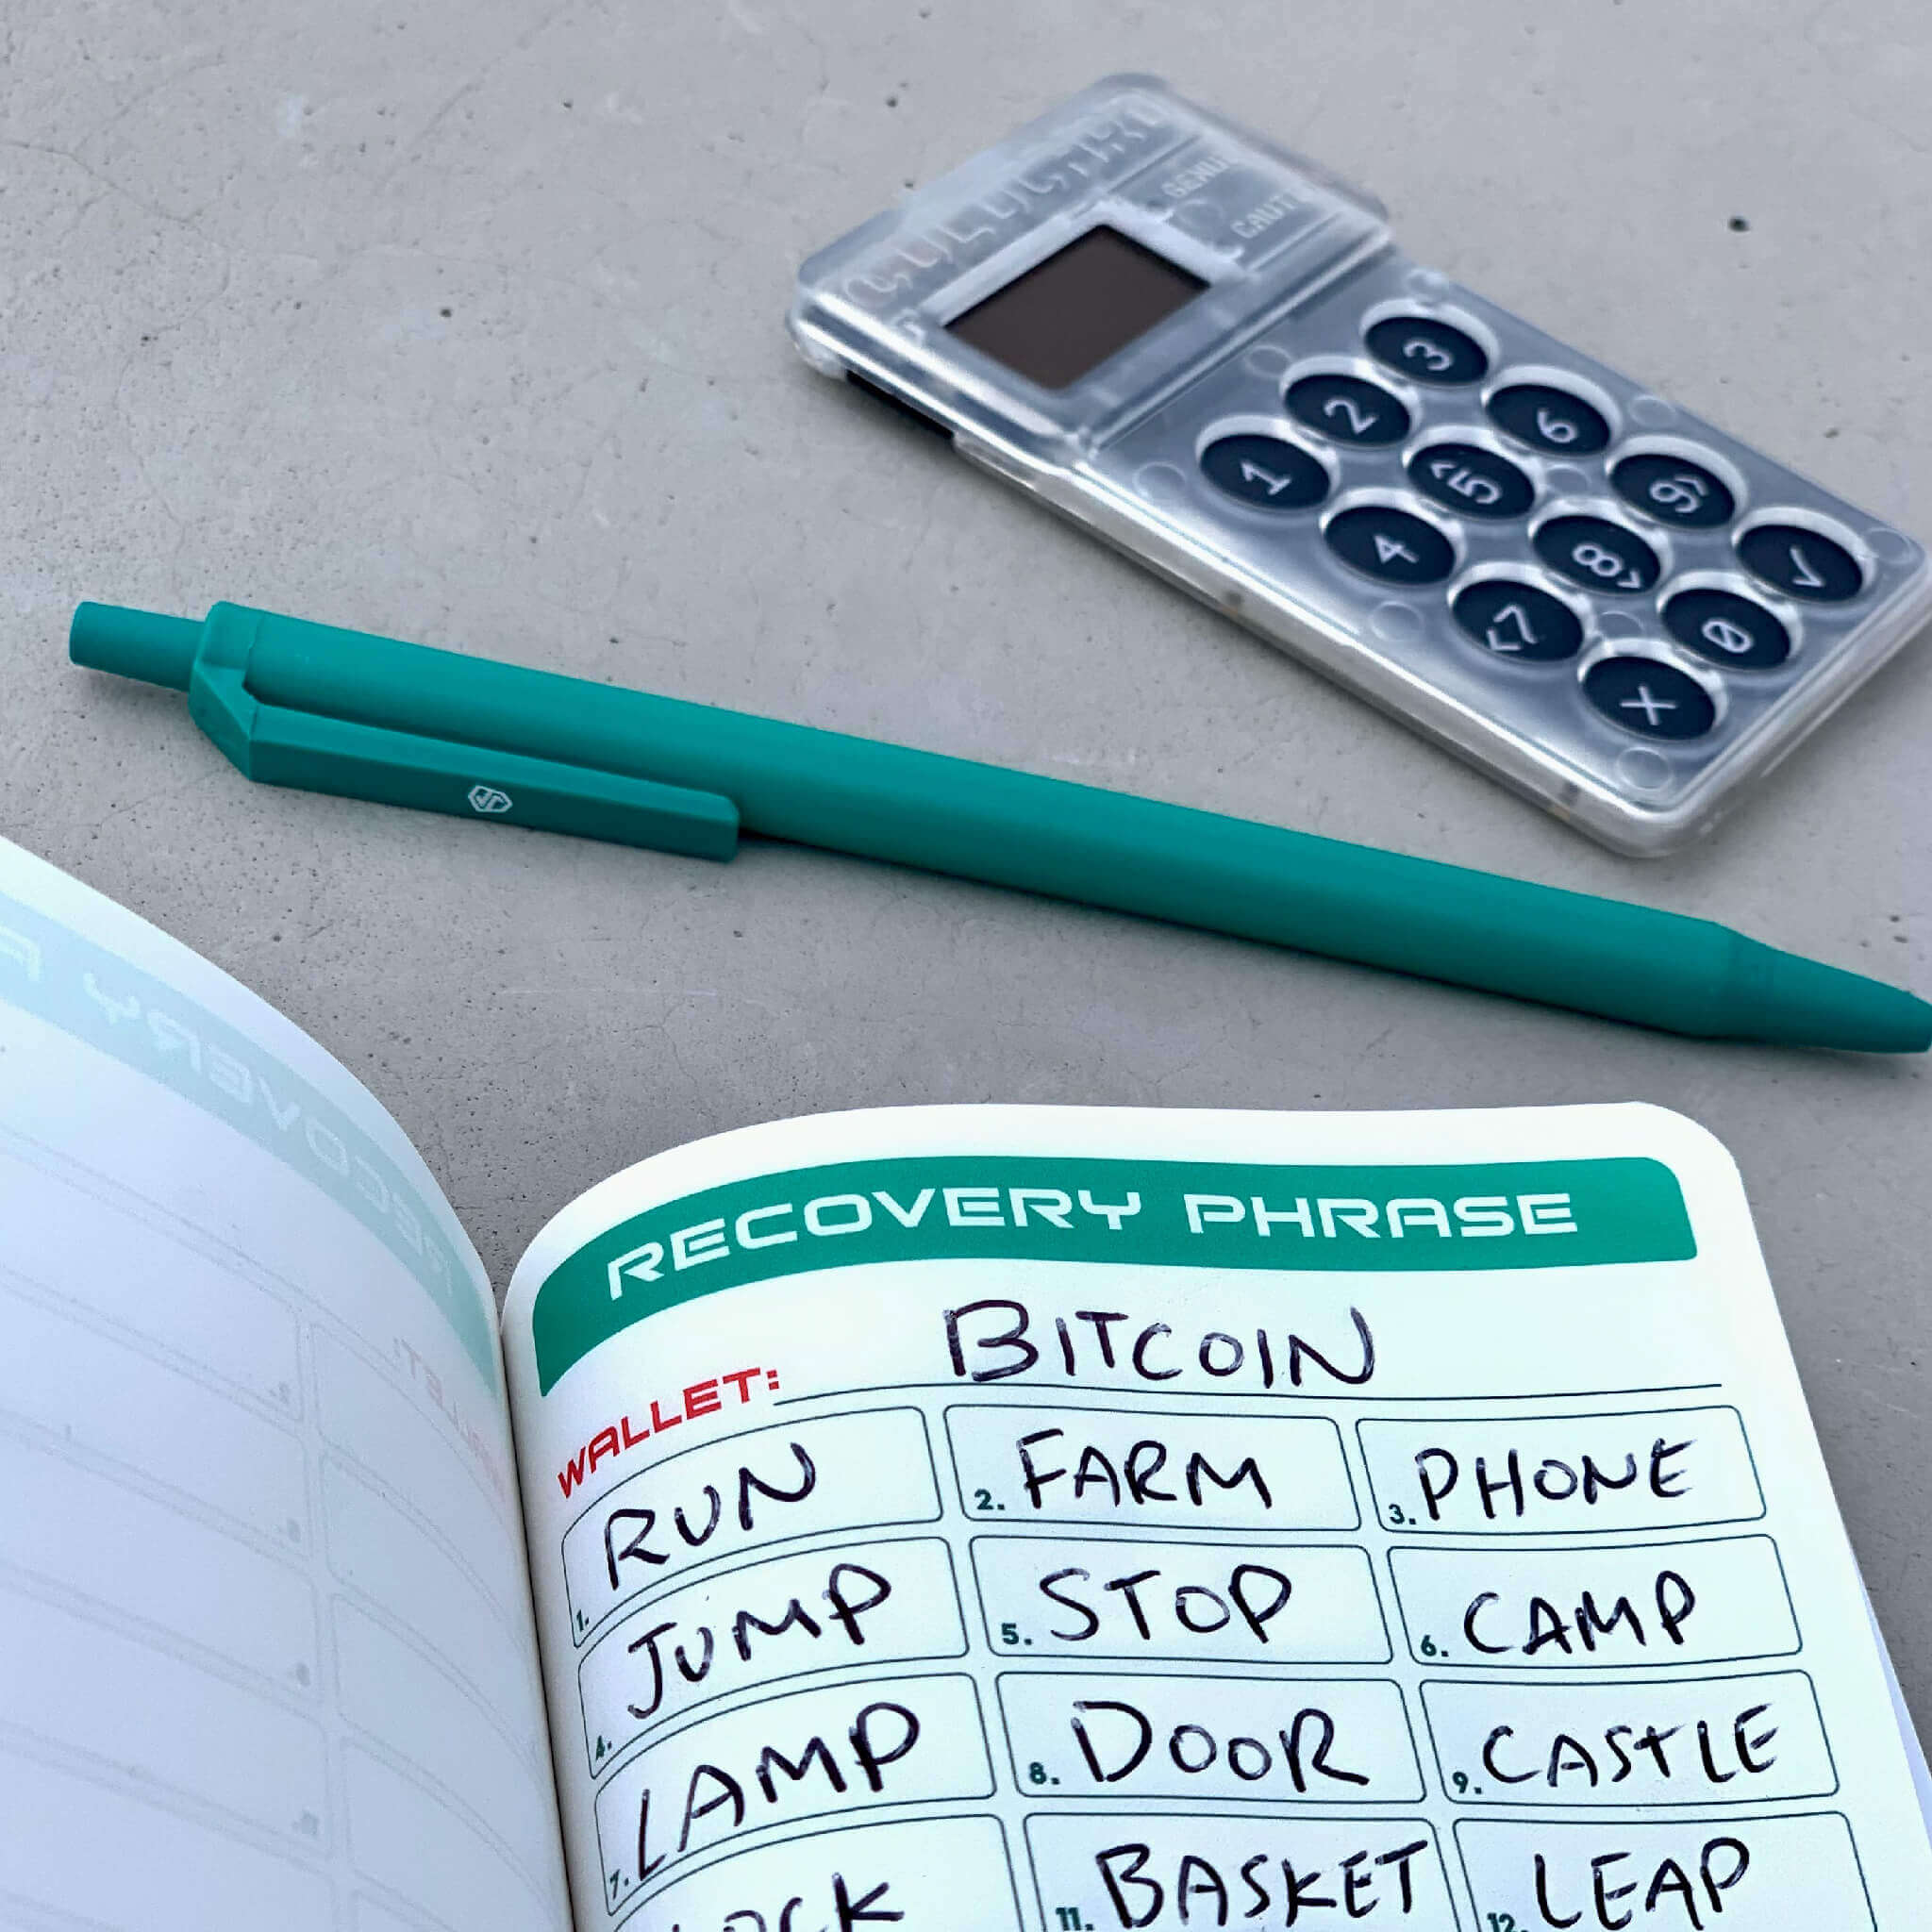 GENUI
CAUTI
3
2 6
1 <5 9>
4 8> ✓
<7 0
X
RECOVERY PHRASE
WALLET: BITCOIN
1. RUN 2. FARM 3. PHONE
4. JUMP 5. STOP 6. CAMP
7. LAMP 8. DOOR 9. CASTLE
11. BASKET 12. LEAP
RECOVERY